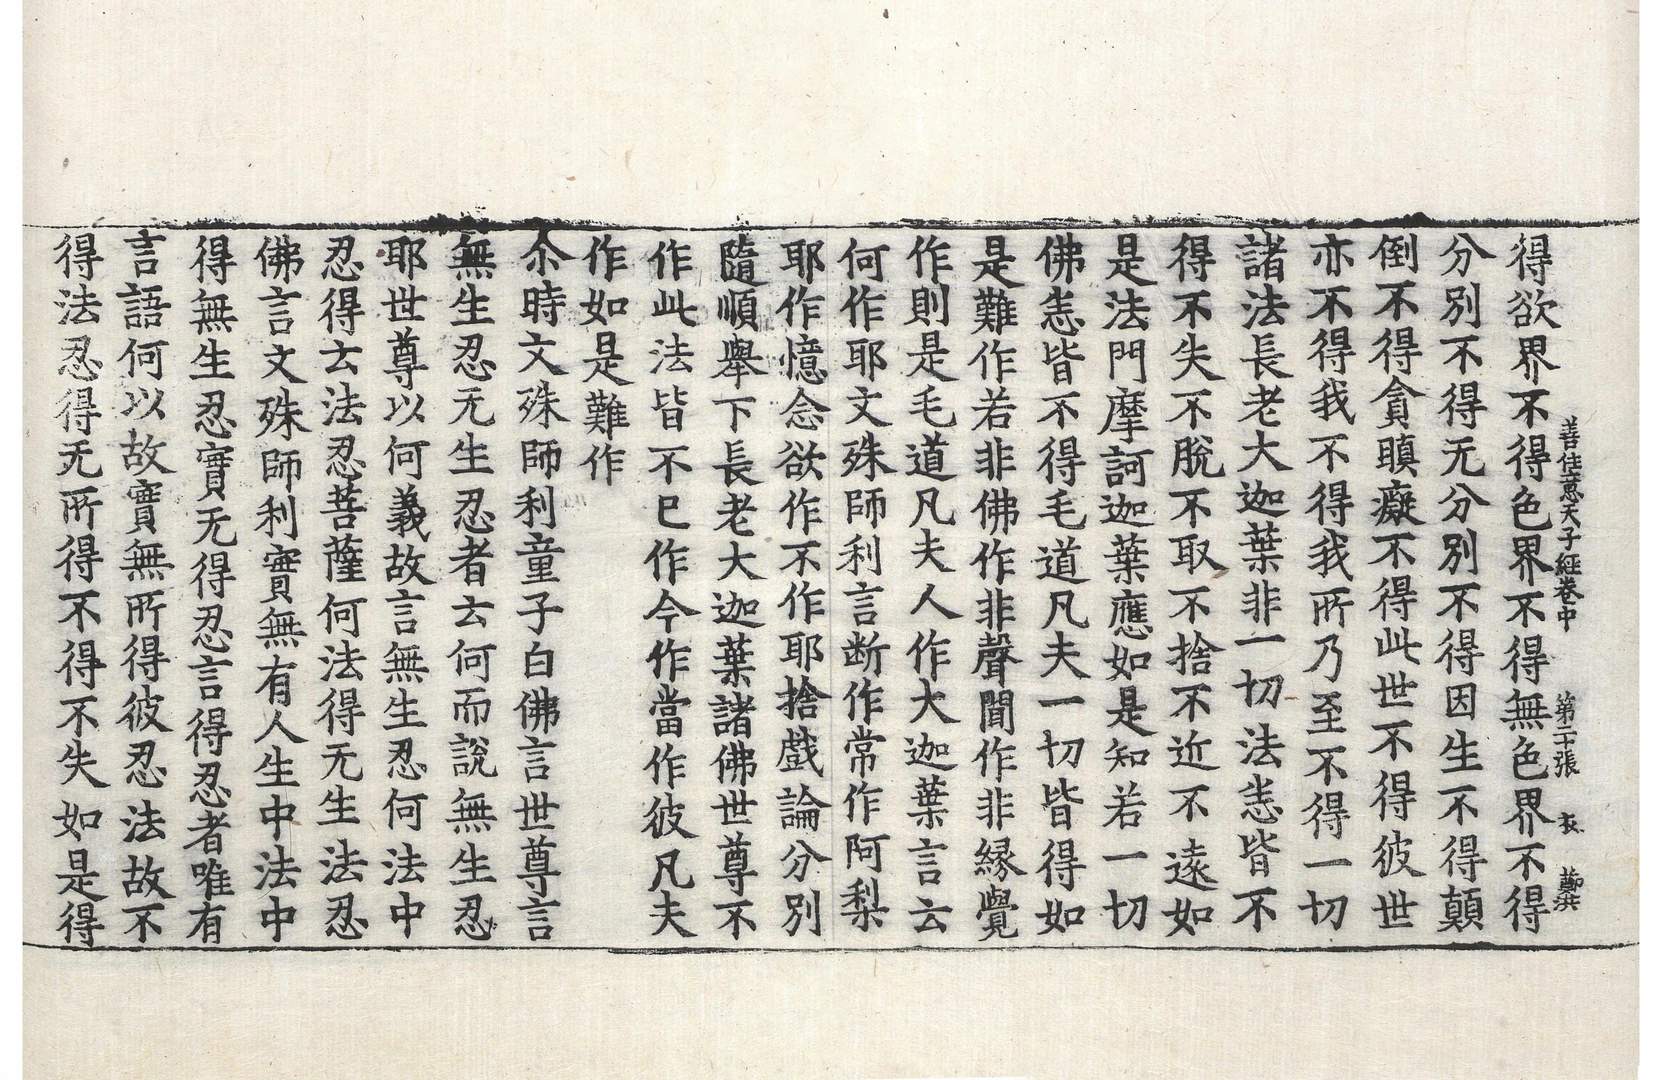 善住意天子經卷中　第二十張　衣　鄭洪
得欲界不得色界不得無色界不得
分別不得无分別不得因生不得顛
倒不得貪瞋癡不得此世不得彼世
亦不得我不得我所乃至不得一切
諸法長老大迦葉非一切法悉皆不
得不失不脫不取不捨不近不遠如
是法門摩訶迦葉應如是知若一切
佛悉皆不得毛道凡夫一切皆得如
是難作若非佛作非聲聞作非緣覺
作則是毛道凡夫人作大迦葉言云
何作耶文殊師利言断作常作阿梨
耶作憶念欲作不作耶捨戲論分別
隨順舉下長老大迦葉諸佛世尊不
作此法皆不已作今作當作彼凡夫
作如是難作
尒時文殊師利童子白佛言世尊言
無生忍无生忍者云何而說無生忍
耶世尊以何義故言無生忍何法中
忍得云法忍菩薩何法得无生法忍
佛言文殊師利實無有人生中法中
得無生忍實无得忍言得忍者唯有
言語何以故實無所得彼忍法故不
得法忍得无所得不得不失如是得